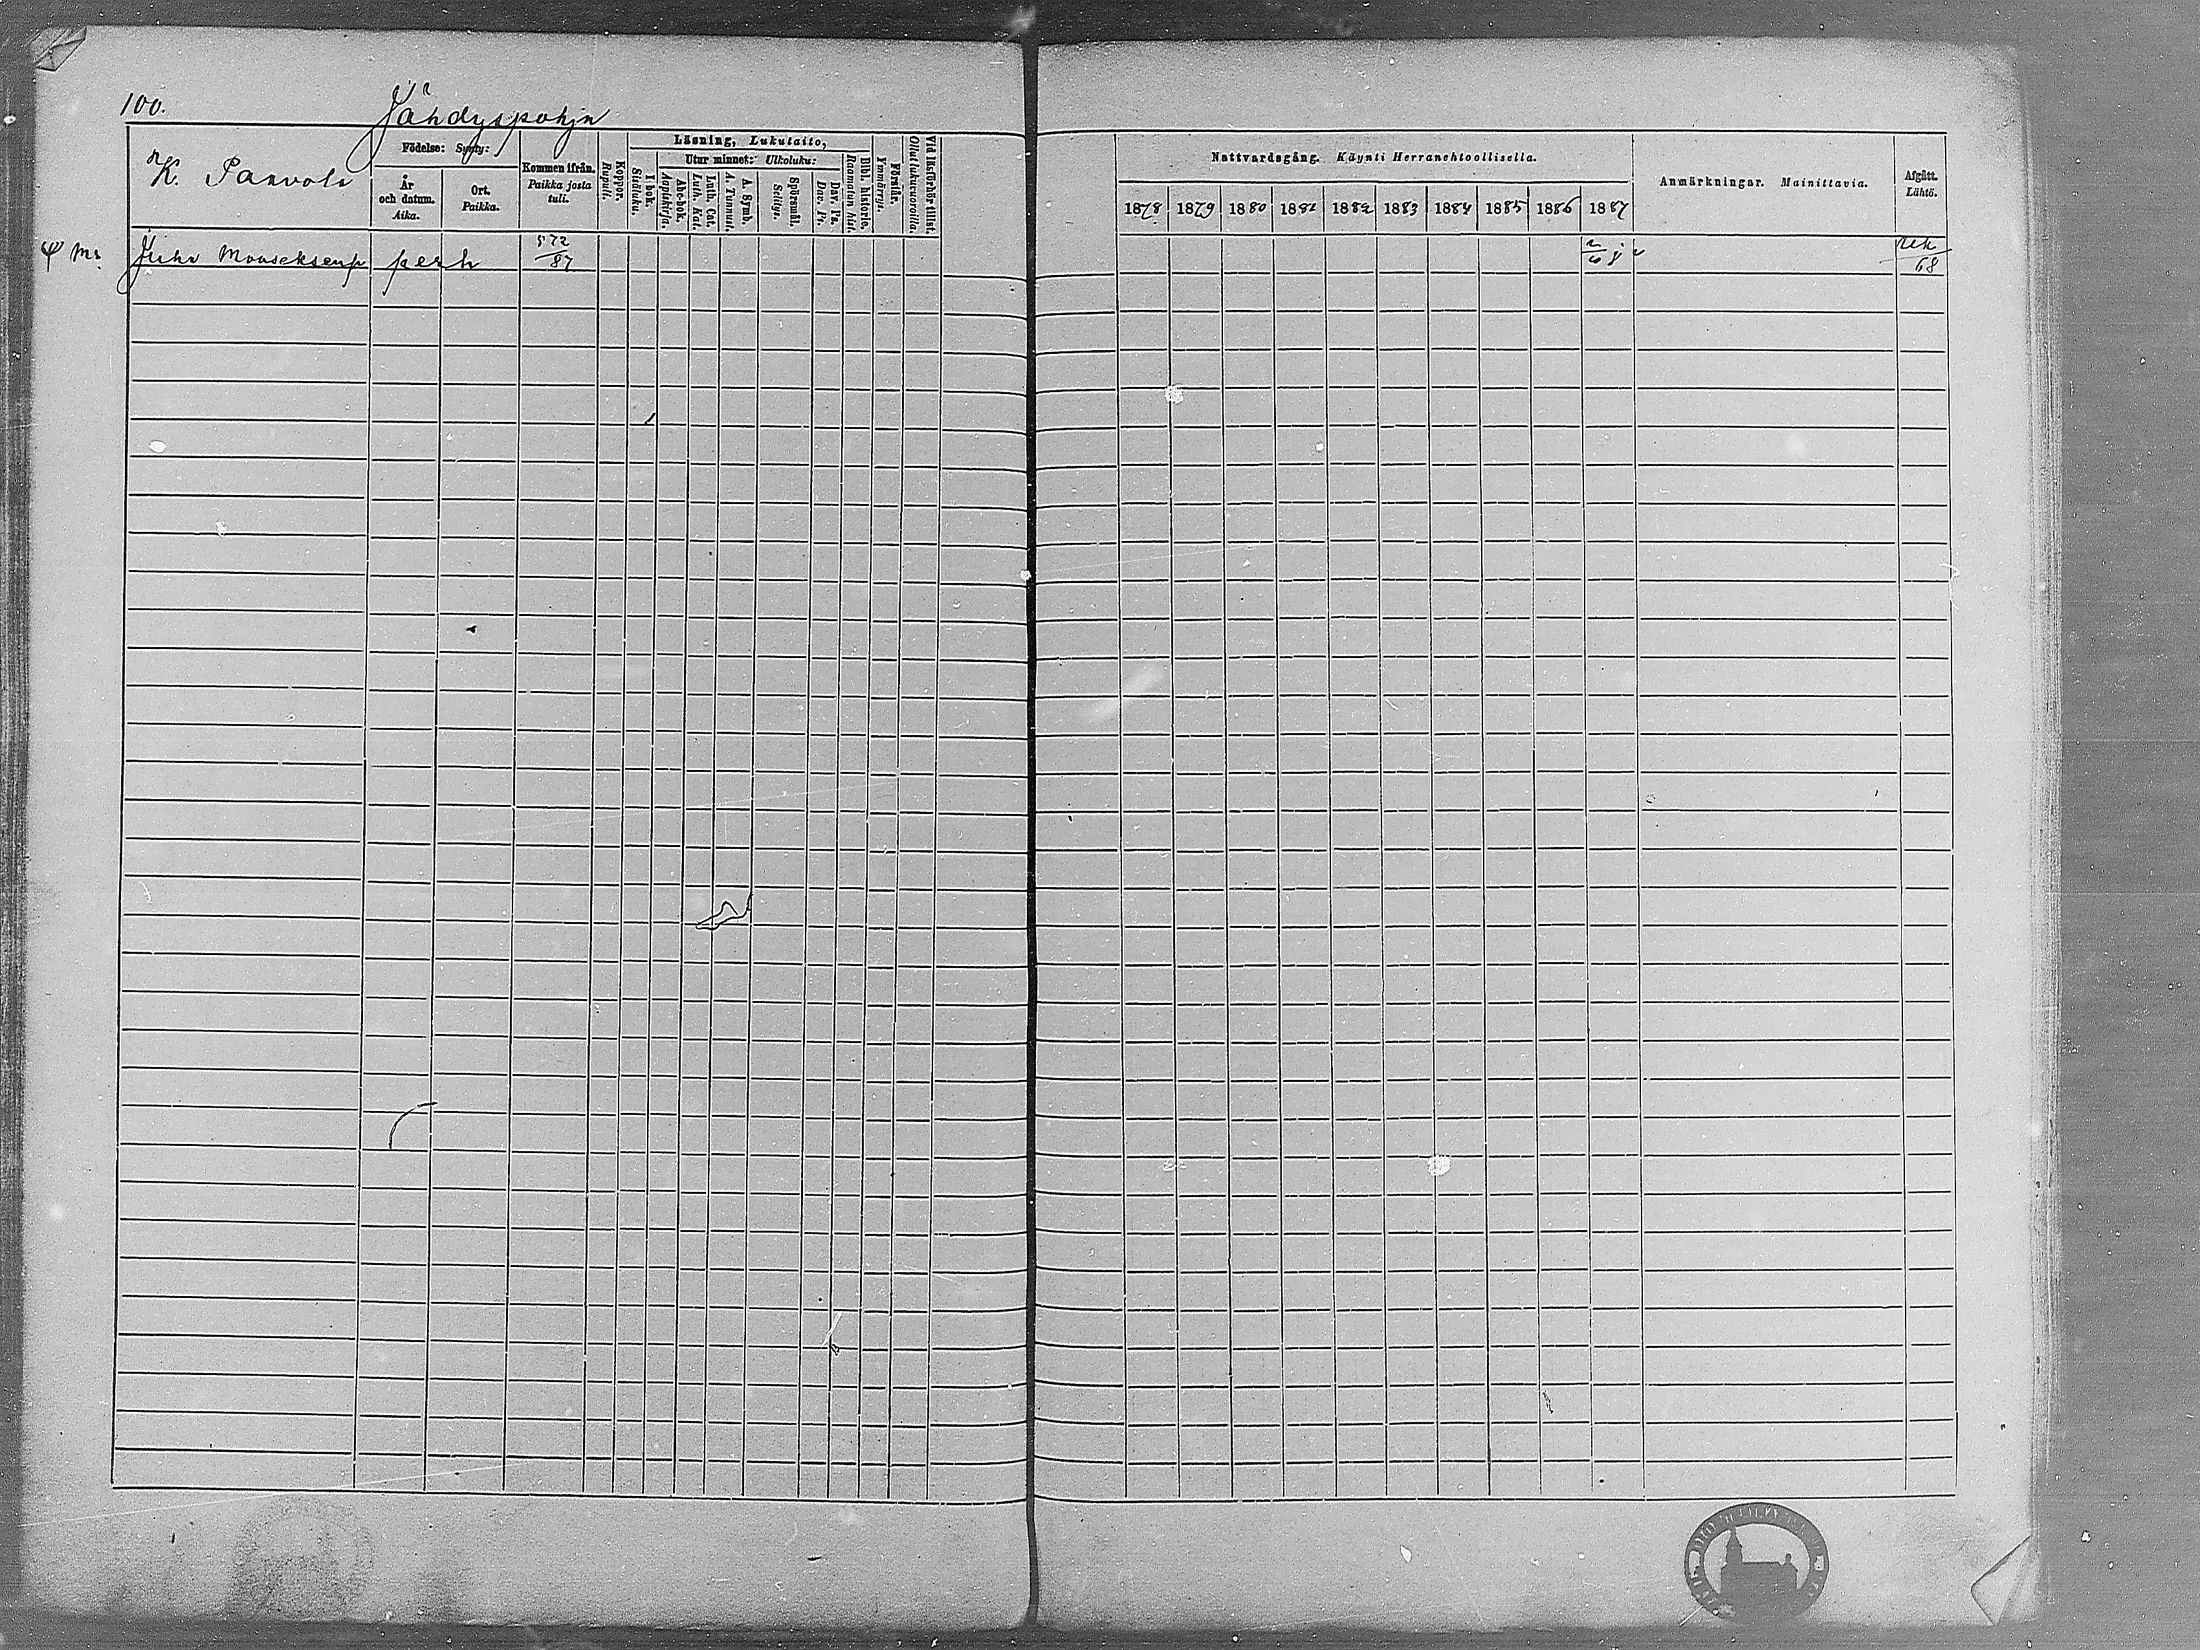 100.
Jähdyspohja
K. Paavola
Födelse: Synty:
År och datum. Aika.
Ort. Paikka.
Kommen ifrån. Paikka josta tuli.
Koppor. Rupuli.
Läsning, Lukutaito,
I bok. Sisäluku.
Utur minnet: Ulkoluku:
Abc-bok. Aapiskirja.
Luth. Cat. Luth. Kat.
A. Symb. A. Tunnust.
Spörsmål. Selitys.
Dav. Ps. Dav. Ps.
Bibl. historie. Raamatun hist.
Förstår. Ymmärrys.
Vid läsförhör tillst. Ollut lukuvuoroilla.
Nattvardsgång. Käynti Herranehtoollisella.
1878 1879 1880 1881 1882 1883 1884 1885 1886 1887
Anmärkningar. Mainittavia.
Afgått. Lähtö.
Juho perh 572/87